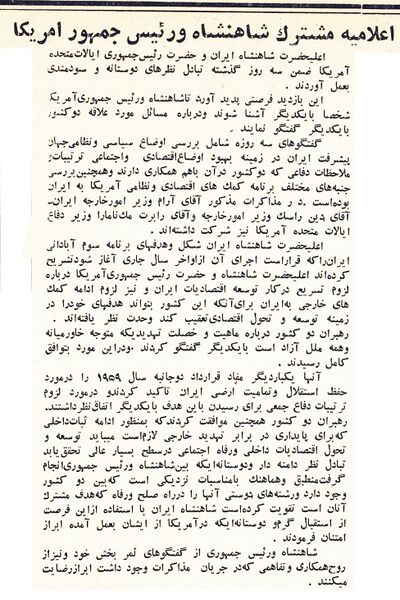 اعلامیه مشترك شاهنشاه ورئیس جمهور امریکا
اعلیحضرت شاهنشاه ایران و حضرت رئیس‌جمهوری ایالات‌متحده
آمریکا ضمن سه روز گذشته تبادل نظرهای دوستانه و سودمندی
بعمل آوردند .
این بازدید فرصتی پدید آورد تاشاهنشاه ورئیس جمهوری‌آمریکا
شخصا بایکدیگر آشنا شوند ودرباره مسائل مورد علاقه دوکشور
بایکدیگر گفتگو نمایند .
گفتگوهای سه روزه شامل بررسی اوضاع سیاسی ونظامی‌جهان
پیشرفت ایران در زمینه بهبود اوضاع‌اقتصادی واجتماعی ترتیبات‌و
ملاحظات دفاعی که دوکشور درآن باهم همکاری دارند وهمچنین‌بررسی
جنبه‌های مختلف برنامه کمك های اقتصادی ونظامی آمریکا به ایران
بوده‌است .در مذاکرات مذکور آقای آرام وزیر امورخارجه ایران-
آقای دین راسك وزیر امورخارجه وآقای رابرت مك‌نامارا وزیر دفاع
ایالات متحده آمریکا نیز شرکت داشته‌اند .
اعلیحضرت شاهنشاه ایران شکل وهدفهای برنامه سوم آبادانی
ایران‌راکه قراراست اجرای آن ازاواخر سال جاری آغاز شودتشریح
کرده‌اند اعلیحضرت شاهنشاه و حضرت رئیس جمهوری‌آمریکا درباره
لزوم تسریع درکار توسعه اقتصادیات ایران و نیز لزوم ادامه کمك
های خارجی به‌ایران برای‌آنکه این کشور بتواند هدفهای خودرا در
زمینه توسعه و تحول اقتصادی‌تعقیب کند وحدت نظر یافته‌اند .
رهبران دو کشور درباره ماهیت و خصلت تهدیدیکه متوجه خاورمیانه
وهمه ملل آزاد است بایکدیگر گفتگو کردند .ودراین مورد بتوافق
کامل رسیدند .
آنها یکباردیگر مفاد قرارداد دوجانبه سال ۱۹۵۹ را درمورد
حفظ استقلال وتمامیت ارضی ایران تاکید کردندو درمورد لزوم
ترتیبات دفاع جمعی برای رسیدن باین هدف بایکدیگر اتفاق‌نظرداشتند.
رهبران دو کشور همچنین موافقت کردندکه بمنظور ادامه ثبات‌داخلی
که‌برای پایداری در برابر تهدید خارجی لازم‌است میباید توسعه و
تحول اقتصادیات داخلی ورفاه اجتماعی درسطح بسیار عالی تحقق‌یابد
تبادل نظر دامنه دار ودوستانه‌ایکه بین‌شاهنشاه ورئیس جمهوری‌انجام
گرفت‌منطبق وهماهنك بامناسبات نزدیکی است که‌بین دو کشور
وجود دارد ورشته‌های دوستی آنها را درراه صلح ورفاه که‌هدف مشترك
آنان است تقویت کرده‌است شاهنشاه ایران با استفاده ازاین فرصت
از استقبال گرم‌و دوستانه‌ایکه درآمریکا از ایشان بعمل آمده ابراز
امتنان فرمودند .
شاهنشاه ورئیس جمهوری از گفتگوهای ثمر بخش خود ونیزاز
روح‌همکاری وتفاهمی که‌درجریان مذاکرات وجود داشت ابرازرضایت
میکنند .